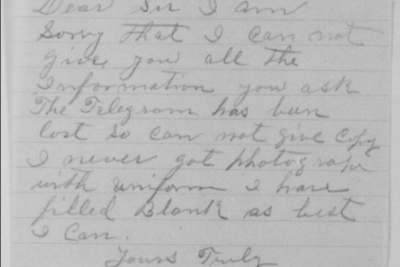 Dear Sir I am
Sorry that I can not
give you all the
Information you ask
The Telegram has ben
lost so can not give Copy
I never got photograph
with uniform I have
filled Blank as best
I Can.
Yours Truly